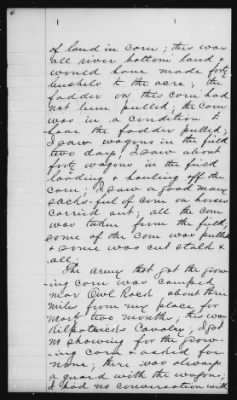 of land in corn; this was
all river bottom land &
would have made forty
bushels to the acre; the
fodder on this corn had
not been pulled; the corn
was in a condition to
bear the fodder pulled;
I saw wagons in the field
two days; I saw about
forty wagons in the field
loading & hauling off the
corn; I saw a good many
sacks-full of corn on horses
carried out; all the corn
was taken from the field,
some of the corn was pulled
& some was cut stalk &
all.
The army that got the grow-
ing corn was camped
near Owl Rock about three
miles from my place for
most two months; this was
Kilpatrick's Cavalry; I got
no showing for the grow-
ing corn & asked for
none; there was always
a guard with the wagons;
I had no conversation with